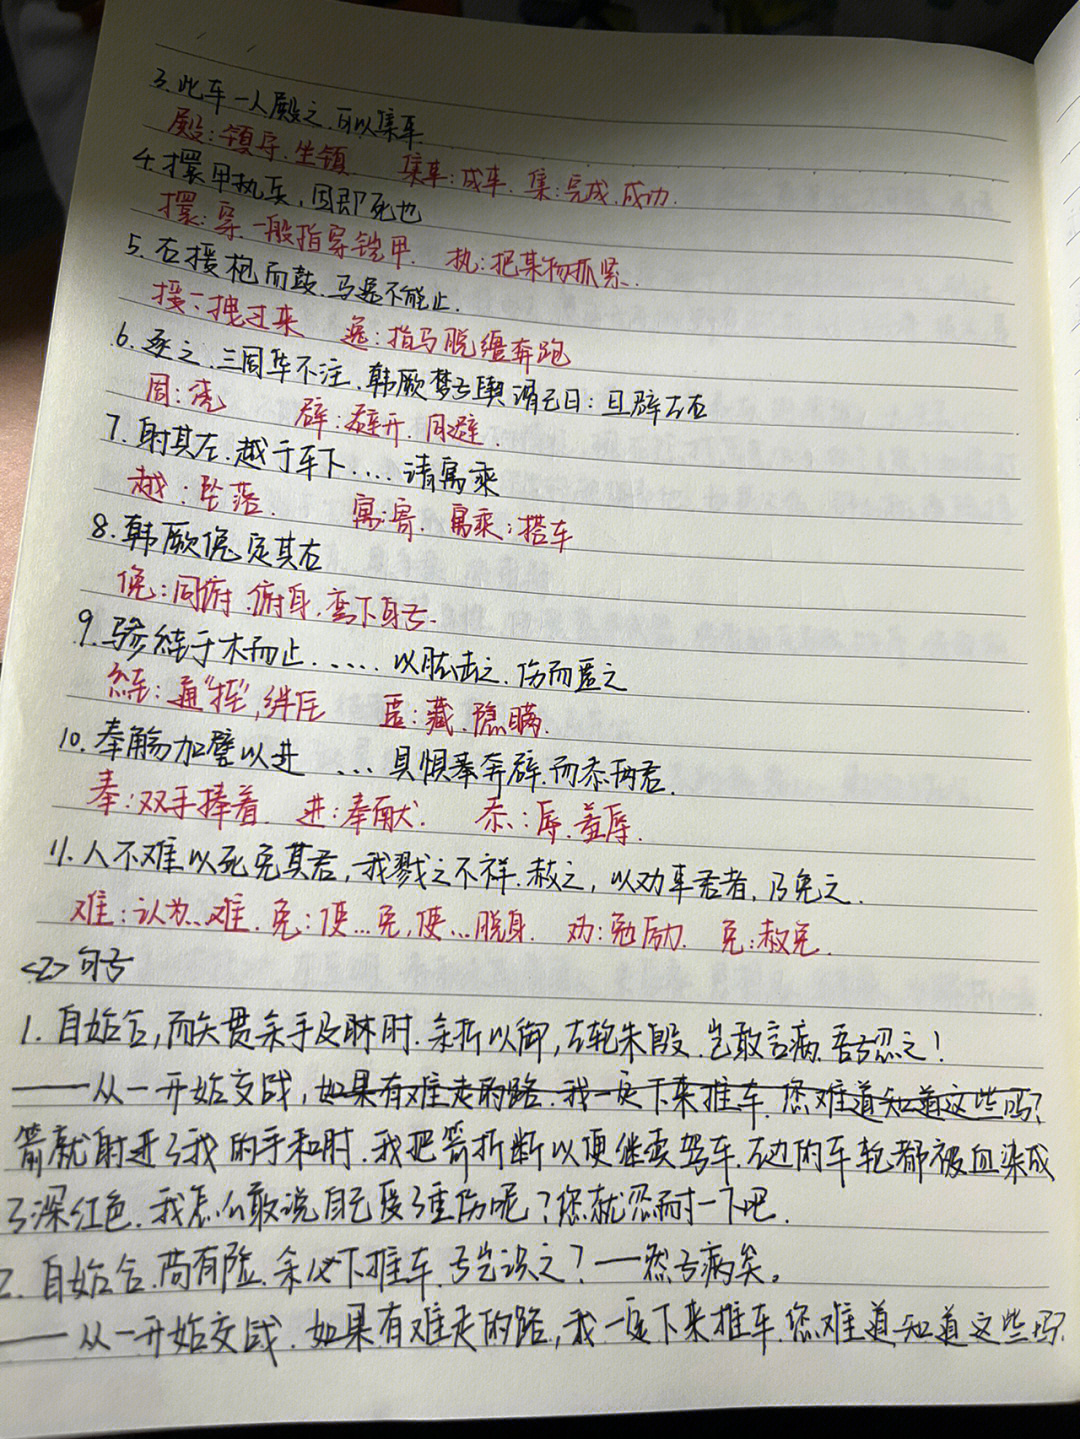 3.此车一人殿之.可以集车
殿:镇守.坐镇 集车:成车.集:完成.成功.
4.擐甲执兵,固即死也
擐:穿.一般指穿铠甲. 执:把某物抓紧.
5.右援枹而鼓.马逸不能止.
援:拽过来 逸:指马脱缰奔跑
6.逐之.三周华不注.韩厥梦子舆谓己曰:旦辟左右
周:绕 辟:避开.同避.
7.射其左.越于车下....请寓乘
越:坠落. 寓:寄. 寓乘:搭车
8.韩厥俛定其右
俛:同俯.俯身.弯下身子.
9.骖絓于木而止......以肱击之.伤而匿之
絓:通"挂",绊住 匿:藏.隐瞒.
10.奉觞加璧以进 ....具惧奉奔辟.而忝两君.
奉:双手捧着. 进:奉献. 忝:辱.羞辱.
11.人不难以死免其君,我戮之不祥.赦之,以劝事君者,乃免之.
难:认为..难.免:使...免,使...脱身. 劝:勉励. 免:赦免.
<2>句子
1.自始合,而矢贯余手及肘.余折以御,左轮朱殷.岂敢言病.吾子忍之!
——从一开始交战,如果有难走的路.我一定下来推车.您难道知道这些吗?
箭就射进了我的手和肘.我把箭折断以便继续驾车.左边的车轮都被血染成
了深红色.我怎么敢说自己受了重伤呢?您就忍耐一下吧.
2.自始合.苟有险.余必下推车.子岂识之?—然子病矣。
——从一开始交战.如果有难走的路,我一定下来推车.您难道知道这些吗?